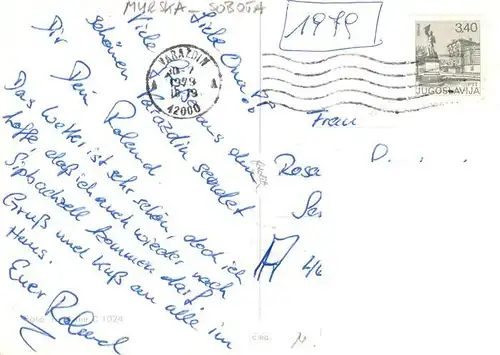 MURSKA - SOBOTA
1979
Liebe Oma!
Viele aus dem
schönen Varazdin sendet
Dir Dein Roland.
Das Wetter ist sehr schön, doch ich
hoffe, daß ich auch wieder nach
Sipbachzell kommen darf.
Gruß und Kuß an alle im
Haus.
Euer Roland
VARAŽDIN
1979
42000
3,40
JUGOSLAVIJA
Frau
Rosa D.
C 1024